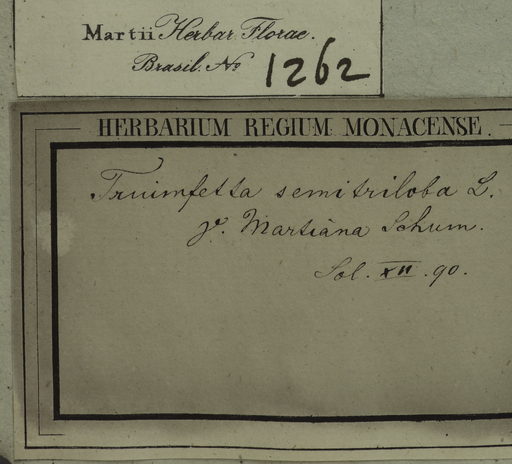 Martii Herbar. Florae.
Brasil. No 1262
HERBARIUM REGIUM MONACENSE.
Truimfetta semitriloba L.
γ. Martiana Schum.
Sol. XII. 90.